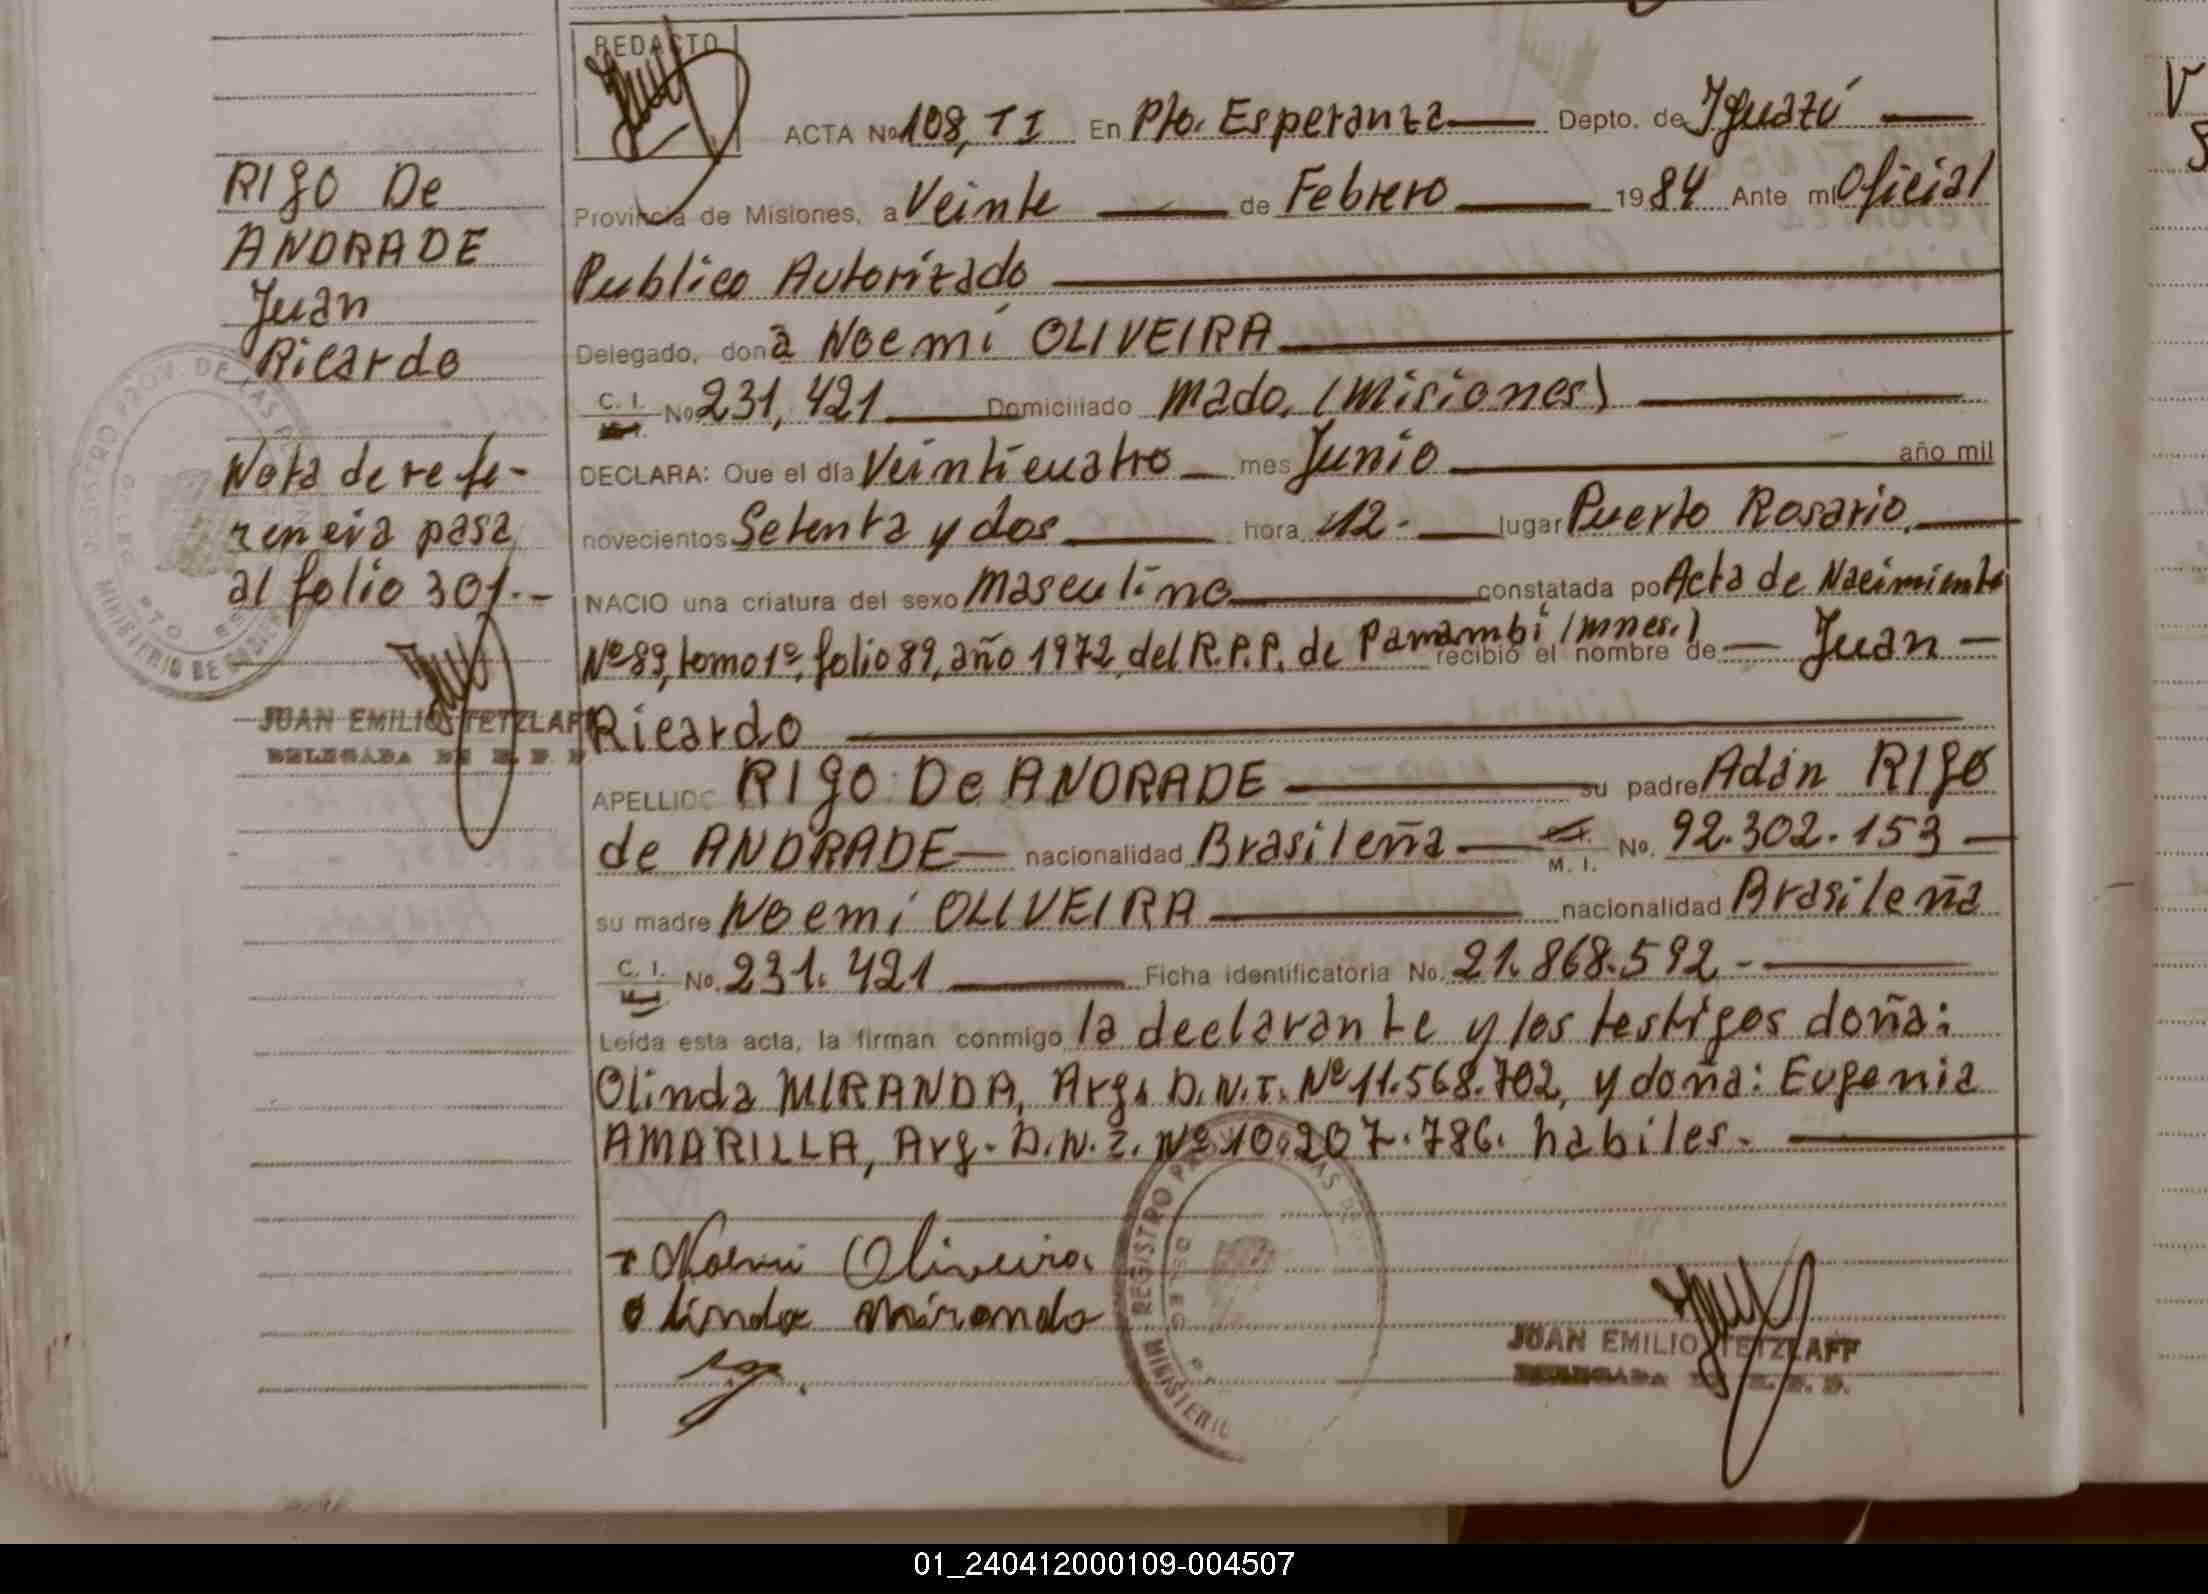 REDACTO
ACTA No 108, T I En Pto. Esperanza Depto. de Iguazú
Provincia de Misiones, a Veinte de Febrero 1984 Ante mí Oficial
Publico Autorizado
Delegado, don a Noemí OLIVEIRA
C. I. No 231,421 Domiciliado Mado, (Misiones)
DECLARA: Que el día Veinticuatro mes Junio año mil
novecientos Setenta y dos hora 12.- lugar Puerto Rosario,
NACIO una criatura del sexo Masculino constatada po Acta de Nacimiento
Nº 89, tomo 1º, folio 89, año 1972, del R.P.P. de Panambí (mnes.) recibió el nombre de Juan
Ricardo
APELLIDO RIgO De ANDRADE su padre Adán RIgO
de ANDRADE nacionalidad Brasileña M. I. No. 92.302.153
su madre Noemí OLIVEIRA nacionalidad Brasileña
C. I. No. 231.421 Ficha identificatoria No. 21.868.592-
Leída esta acta, la firman conmigo la declarante y los testigos doña:
Olinda MIRANDA, Arg. D.N.I. Nº 11.568.702, y doña: Eugenia
AMARILLA, Arg. D.N.I. Nº 10.207.786. habiles.
Noemi Oliveira
Olinda Miranda
JUAN EMILIO TETZLAFF
DELEGADA DE R. P. P.
RIgO De
ANDRADE
Juan
Ricardo
Nota de refe-
rencia pasa
al folio 301.-
JUAN EMILIO TETZLAFF
DELEGADA DE R. P. P
REGISTRO PROV. DE LAS
MINISTERIO DE
REGISTRO
MINISTERIO
01_240412000109-004507